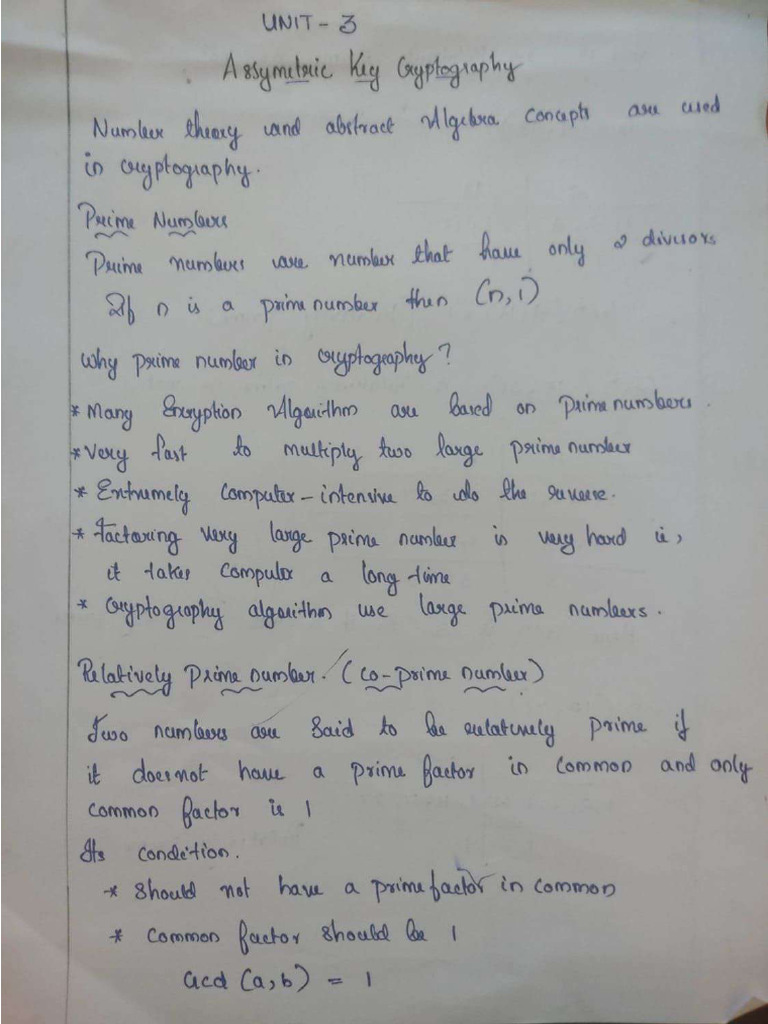 UNIT - 3
Assymetric Key Cryptography
Number theory and abstract Algebra concepts are used
in cryptography.
Prime Numbers
Prime numbers are number that have only 2 divisors
If n is a prime number then (n,1)
Why prime number in cryptography?
* Many Encryption Algorithm are based on prime numbers.
* Very fast to multiply two large prime number
* Extremely computer - intensive to do the reverse.
* Factoring very large prime number is very hard ie,
it takes computer a long time
* Cryptography algorithm use large prime numbers.
Relatively Prime number. (co-prime number)
Two numbers are said to be relatively prime if
it doesnot have a prime factor in common and only
common factor is 1
Its condition.
* Should not have a prime factor in common
* Common factor should be 1
Gcd (a,b) = 1